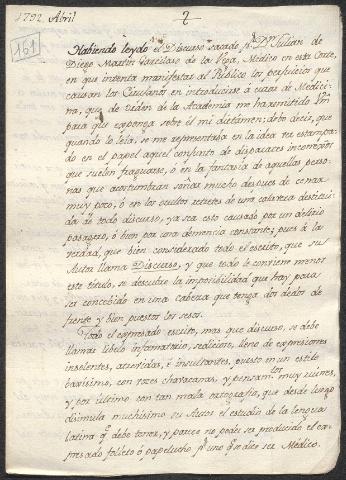 1792 Abril
2
161
Habiendo leydo el Discurso sacado pr. Dn. Julian de
Diego Martin Garcilaso de la Vega, Médico en esta Corte,
en que intenta manifestar al Público los perjuicios que
causan los Cirujanos en introducirse á curas de Medici-
na, que de Orden de la Academia me ha remitido Vm
para que exponga sobre él mi dictamen; debo decir, que
quando lo leía, se me representaba en la idea ver estampa-
do en el papel aquel conjunto de disparates inconexos
que suelen fraguarse, ó en la fantasía de aquellas perso-
nas que acostumbran soñar mucho despues de cenar
muy poco, ó en los ocultos retretes de una cabeza destitui-
da de todo discurso, ya sea esto causado por un delirio
pasagero, ó bien por una demencia constante; pues á la
verdad, que bien considerado todo el escrito, que su
Autor llama Discurso, y que todo le conviene menos
este titulo, se descubre la imposibilidad que hay para
ser concebido en una cabeza que tenga dos dedos de
frente y bien puestos los sesos.
Todo el expresado escrito, mas que discurso, se debe
llamar libelo infamatorio, lleno de expresiones
insolentes, atrevidas, é insultantes, puesto en un estilo
baxisimo, con voces chavacanas, y pensamtos. muy ruines,
y por último con tan mala ortografia, que desde luego
disimula muchisimo su Autor el estudio de la lengua
latina qe. debe tener, y parece no poder ser producido el ex-
presado folleto ó papelucho pr. uno qe. se dice ser Médico.